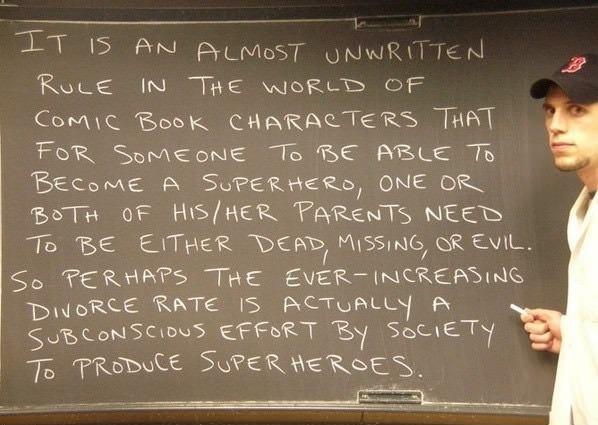 IT IS AN ALMOST UNWRITTEN
RULE IN THE WORLD OF
COMIC BOOK CHARACTERS THAT
FOR SOMEONE TO BE ABLE TO
BECOME A SUPERHERO, ONE OR
BOTH OF HIS/HER PARENTS NEED
TO BE EITHER DEAD, MISSING, OR EVIL.
SO PERHAPS THE EVER-INCREASING
DIVORCE RATE IS ACTUALLY A
SUBCONSCIOUS EFFORT BY SOCIETY
TO PRODUCE SUPERHEROES.
B